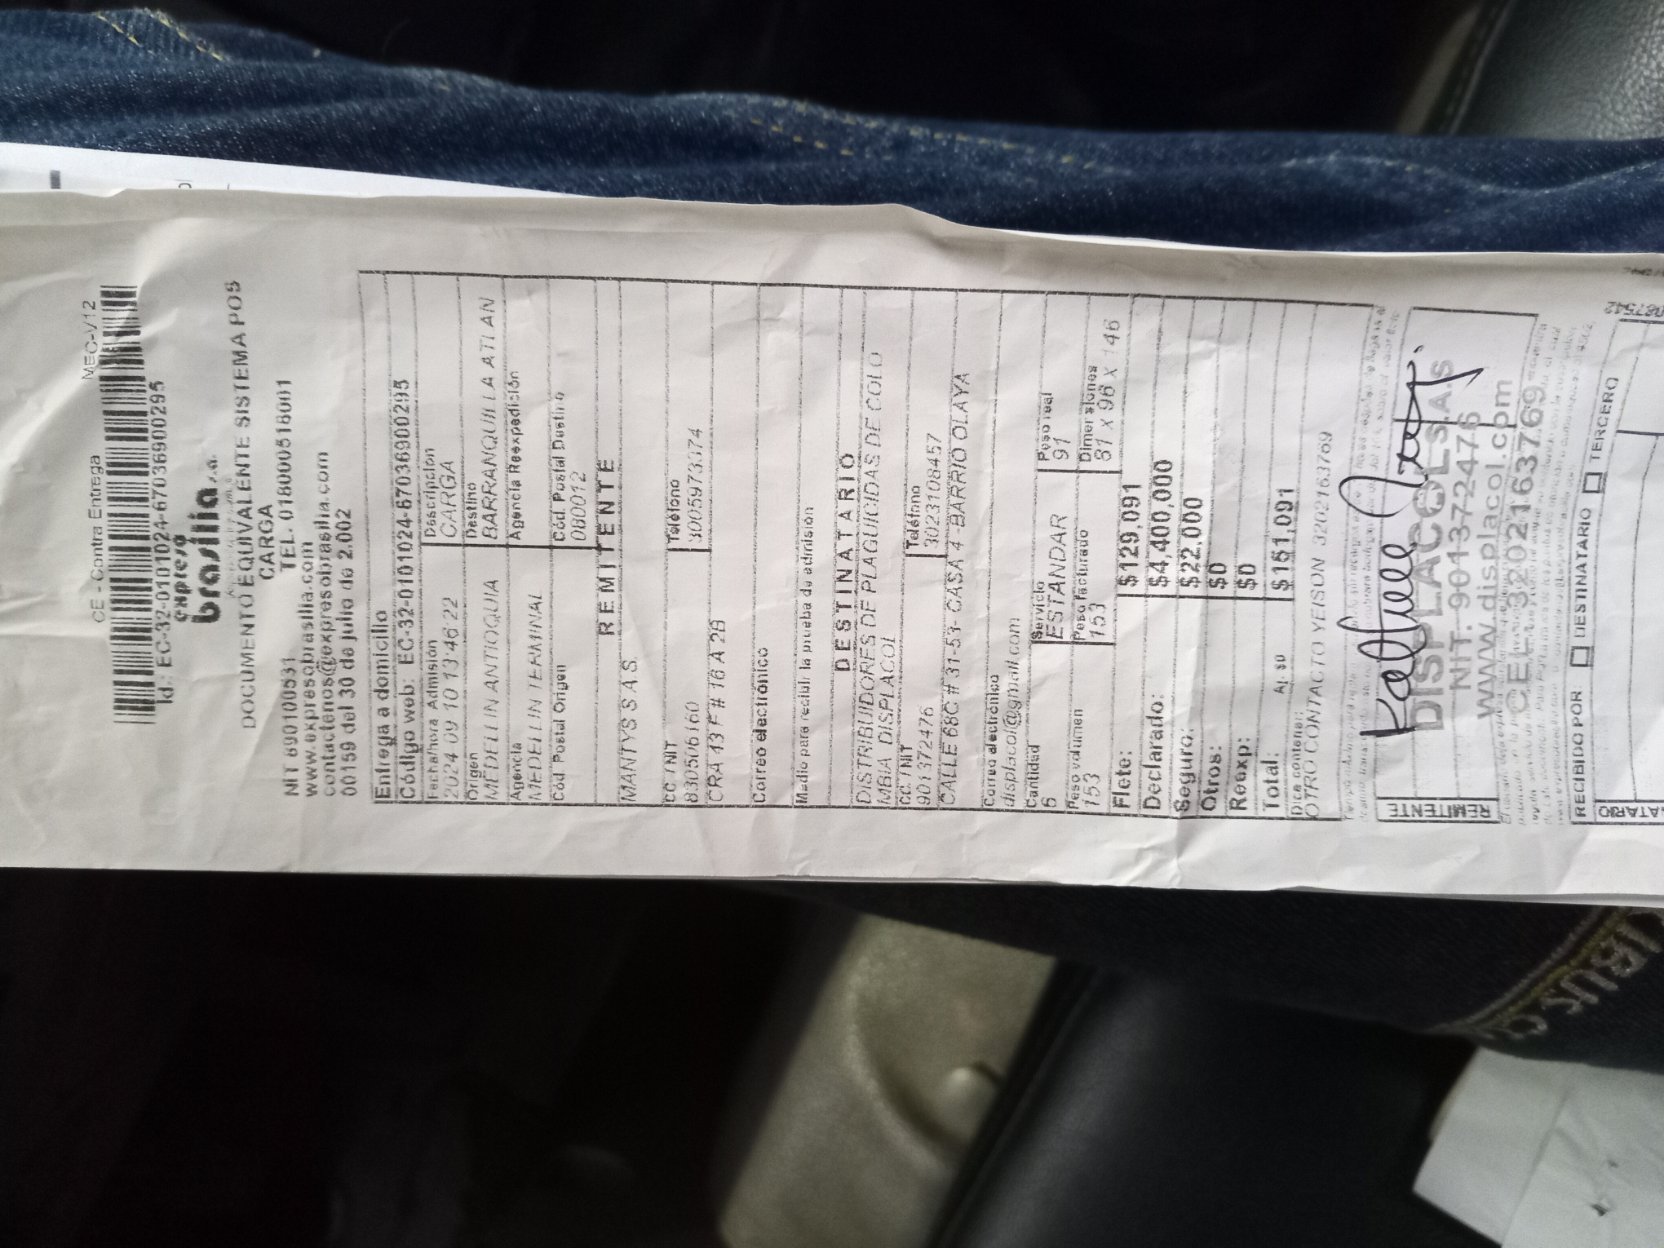 CE - Contra Entrega
MEC-V12
Id.: EC-32-0101024-67036900295
expreso
brasilia s.a.
DOCUMENTO EQUIVALENTE SISTEMA POS
CARGA
NIT 890100531 TEL. 018000518001
www.expresobrasilia.com
contactenos@expresobrasilia.com
00159 del 30 de julio de 2.002
Entrega a domicilio
Código web: EC-32-0101024-67036900295
Fecha/hora Admisión Descripción
2024 09 10 13 46 22 CARGA
Origen Destino
MEDELLIN ANTIOQUIA BARRANQUILLA ATLAN
Agencia Agencia Reexpedición
MEDELLIN TERMINAL
Cód. Postal Origen Cód. Postal Destino
080012
REMITENTE
MANTYS S A S
CC / NIT Teléfono
830506160 3005973374
CRA 43 F # 16 A 28
Correo electrónico
Medio para recibir la prueba de admisión
DESTINATARIO
DISTRIBUIDORES DE PLAGUICIDAS DE COLO
MBIA DISPLACOL
CC / NIT Teléfono
901372476 3023108457
CALLE 68C # 31-53- CASA 4 - BARRIO OLAYA
Correo electrónico
displacol@gmail.com
Cantidad Servicio Peso real
6 ESTANDAR 91
Peso volumen Peso facturado Dimensiones
153 153 81 X 96 X 146
Flete: $129,091
Declarado: $4,400,000
Seguro: $22.000
Otros: $0
Reexp: $0
Total: Aj. $0 $151,091
Dice contener:
OTRO CONTACTO YEISON 3202163769
REMITENTE
DISPLACOL S.A.S
NIT. 901372476
www.displacol.com
CEL. 3202163769
RECIBIDO POR: DESTINATARIO TERCERO